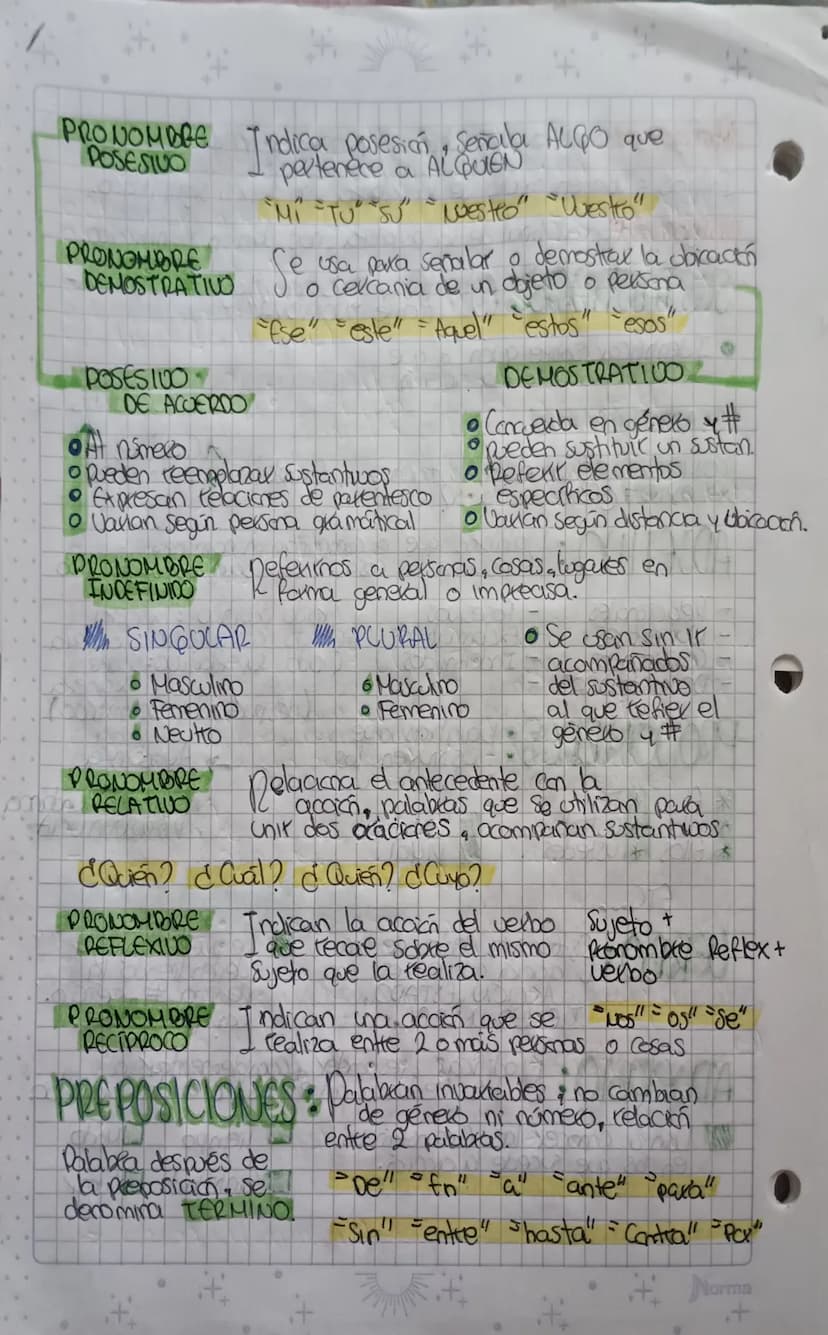 PRONOMBRE POSESIVO
Indica posesión, señala ALGO que
pertenece a ALGUIEN
"Mí" "TU" "SU" "Nuestro" "Vuestro"
PRONOMBRE DEMOSTRATIVO
Se usa para señalar o demostrar la ubicación
o cercania de un objeto o persona
"Ese" "este" "Aquel" "estos" "esos"
POSESIVO
DE ACUERDO
Al número
Pueden reemplazar sustantivos
Expresan relaciones de parentesco
Varian según persona grámatical
DEMOSTRATIVO
Concuerda en género y #
Pueden sustituir un sustan.
Referir elementos
específicos
Varian según distancia y Ubicación.
PRONOMBRE INDEFINIDO
Referirnos a personas, cosas, lugares en
forma general o imprecisa.
SINGULAR
Masculino
Femenino
Neutro
PLURAL
Masculino
Femenino
Se usan sin ir
acompañados
del sustantivo
al que refier el
género y #
PRONOMBRE RELATIVO
Relaciona el antecedente con la
acción, palabras que se utilizan para
unir dos oraciones, acompañan sustantivos
¿Quién? ¿Cuál? ¿Quién? ¿Cuyo?
PRONOMBRE REFLEXIVO
Indican la acción del verbo
que recae sobre el mismo
Sujeto que la realiza.
Sujeto +
Pronombre Reflex +
verbo
PRONOMBRE RECÍPROCO
Indican una acción que se
realiza entre 2 o más personas o cosas
"Nos" "os" "Se"
PREPOSICIONES: Palabran invariables; no cambian
de género ni número, relación
entre 2 palabras.
Palabra después de
la preposición, se
denomina TÉRMINO.
"De" "En" "a" "ante" "para"
"Sin" "entre" "hasta" "Contra" "Por"
Norma